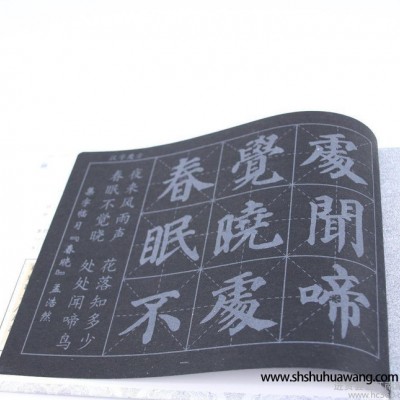 集字临习『春晓』孟浩然
春眠不觉晓 处处闻啼鸟
夜来风雨声 花落知多少
春眠不
覺曉處
處聞啼
www.shshuhuawang.com